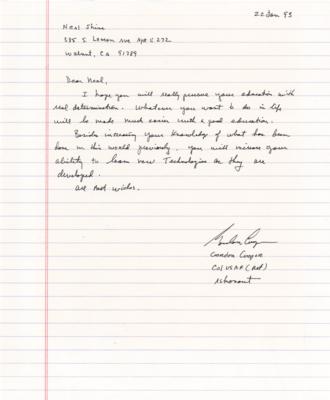 22 Jan 93
Neal Shine
385 S. Lemon Ave Apt E 272
Walnut, Ca 91789
Dear Neal,
I hope you will really persue your education with
real determination. Whatever you want to do in life
will be made much easier with a good education.
Besides increasing your knowledge of what has been
done in this world previously, you will increase your
ability to learn new Technologies as they are
developed.
All best wishes.
Gordon Cooper
Gordon Cooper
Col USAF (Ret)
Astronaut